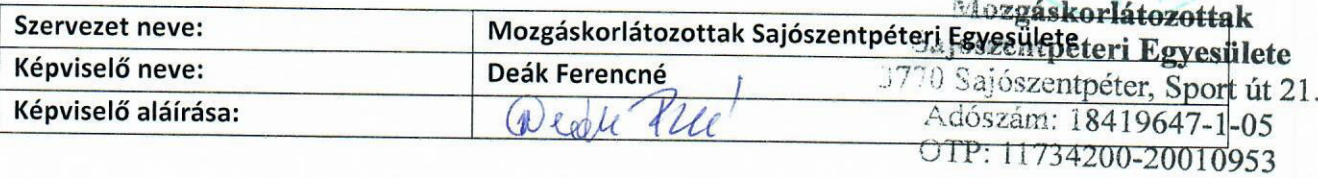 Szervezet neve: Mozgáskorlátozottak Sajószentpéteri Egyesülete
Képviselő neve: Deák Ferencné
Képviselő aláírása: Deák Fné
Mozgáskorlátozottak
Sajószentpéteri Egyesülete
3770 Sajószentpéter, Sport út 21.
Adószám: 18419647-1-05
OTP: 11734200-20010953